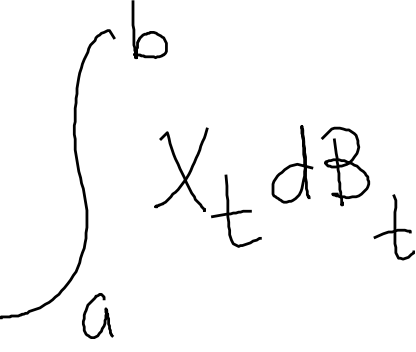 ∫_a^b X_t dB_t